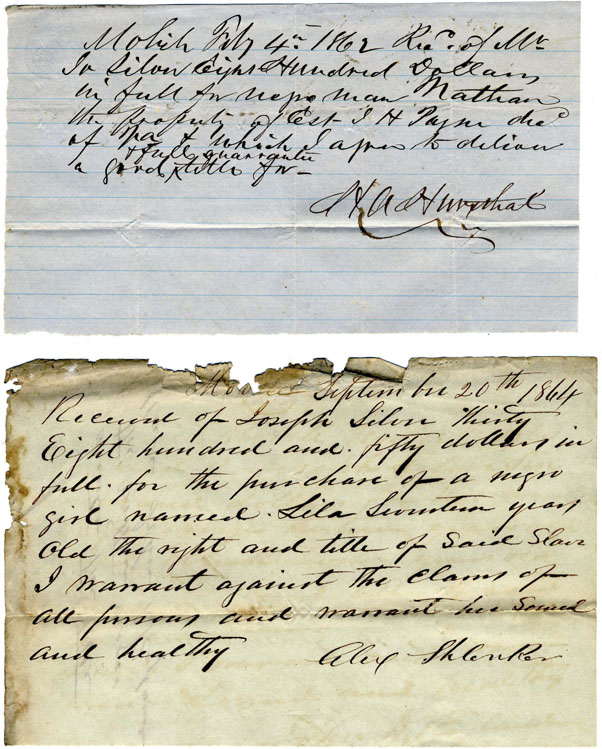 Mobile Feby 4th 1862 Recd of Mr
Jo Silver Eight Hundred Dollars
in full for negro man Nathan
the property of Est J H Payne decd
of & which I agree to deliver
& full guarantee
a good title for
September 20th 1864
Received of Joseph Silver Thirty
Eight hundred and fifty dollars in
full for the purchase of a negro
girl named Lila Seventeen years
old the right and title of Said Slave
I warrant against the claims of
all persons and warrant her Sound
and healthy Alex Shlenker